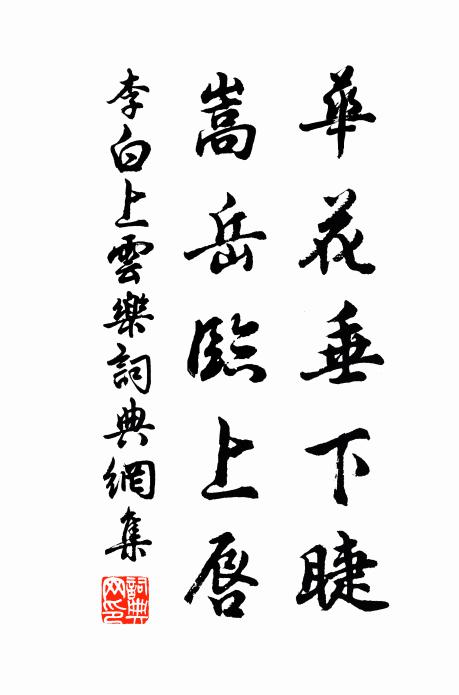 華花垂下睫
嵩岳臨上唇
李白上雲樂詞典網集
詞典
网印